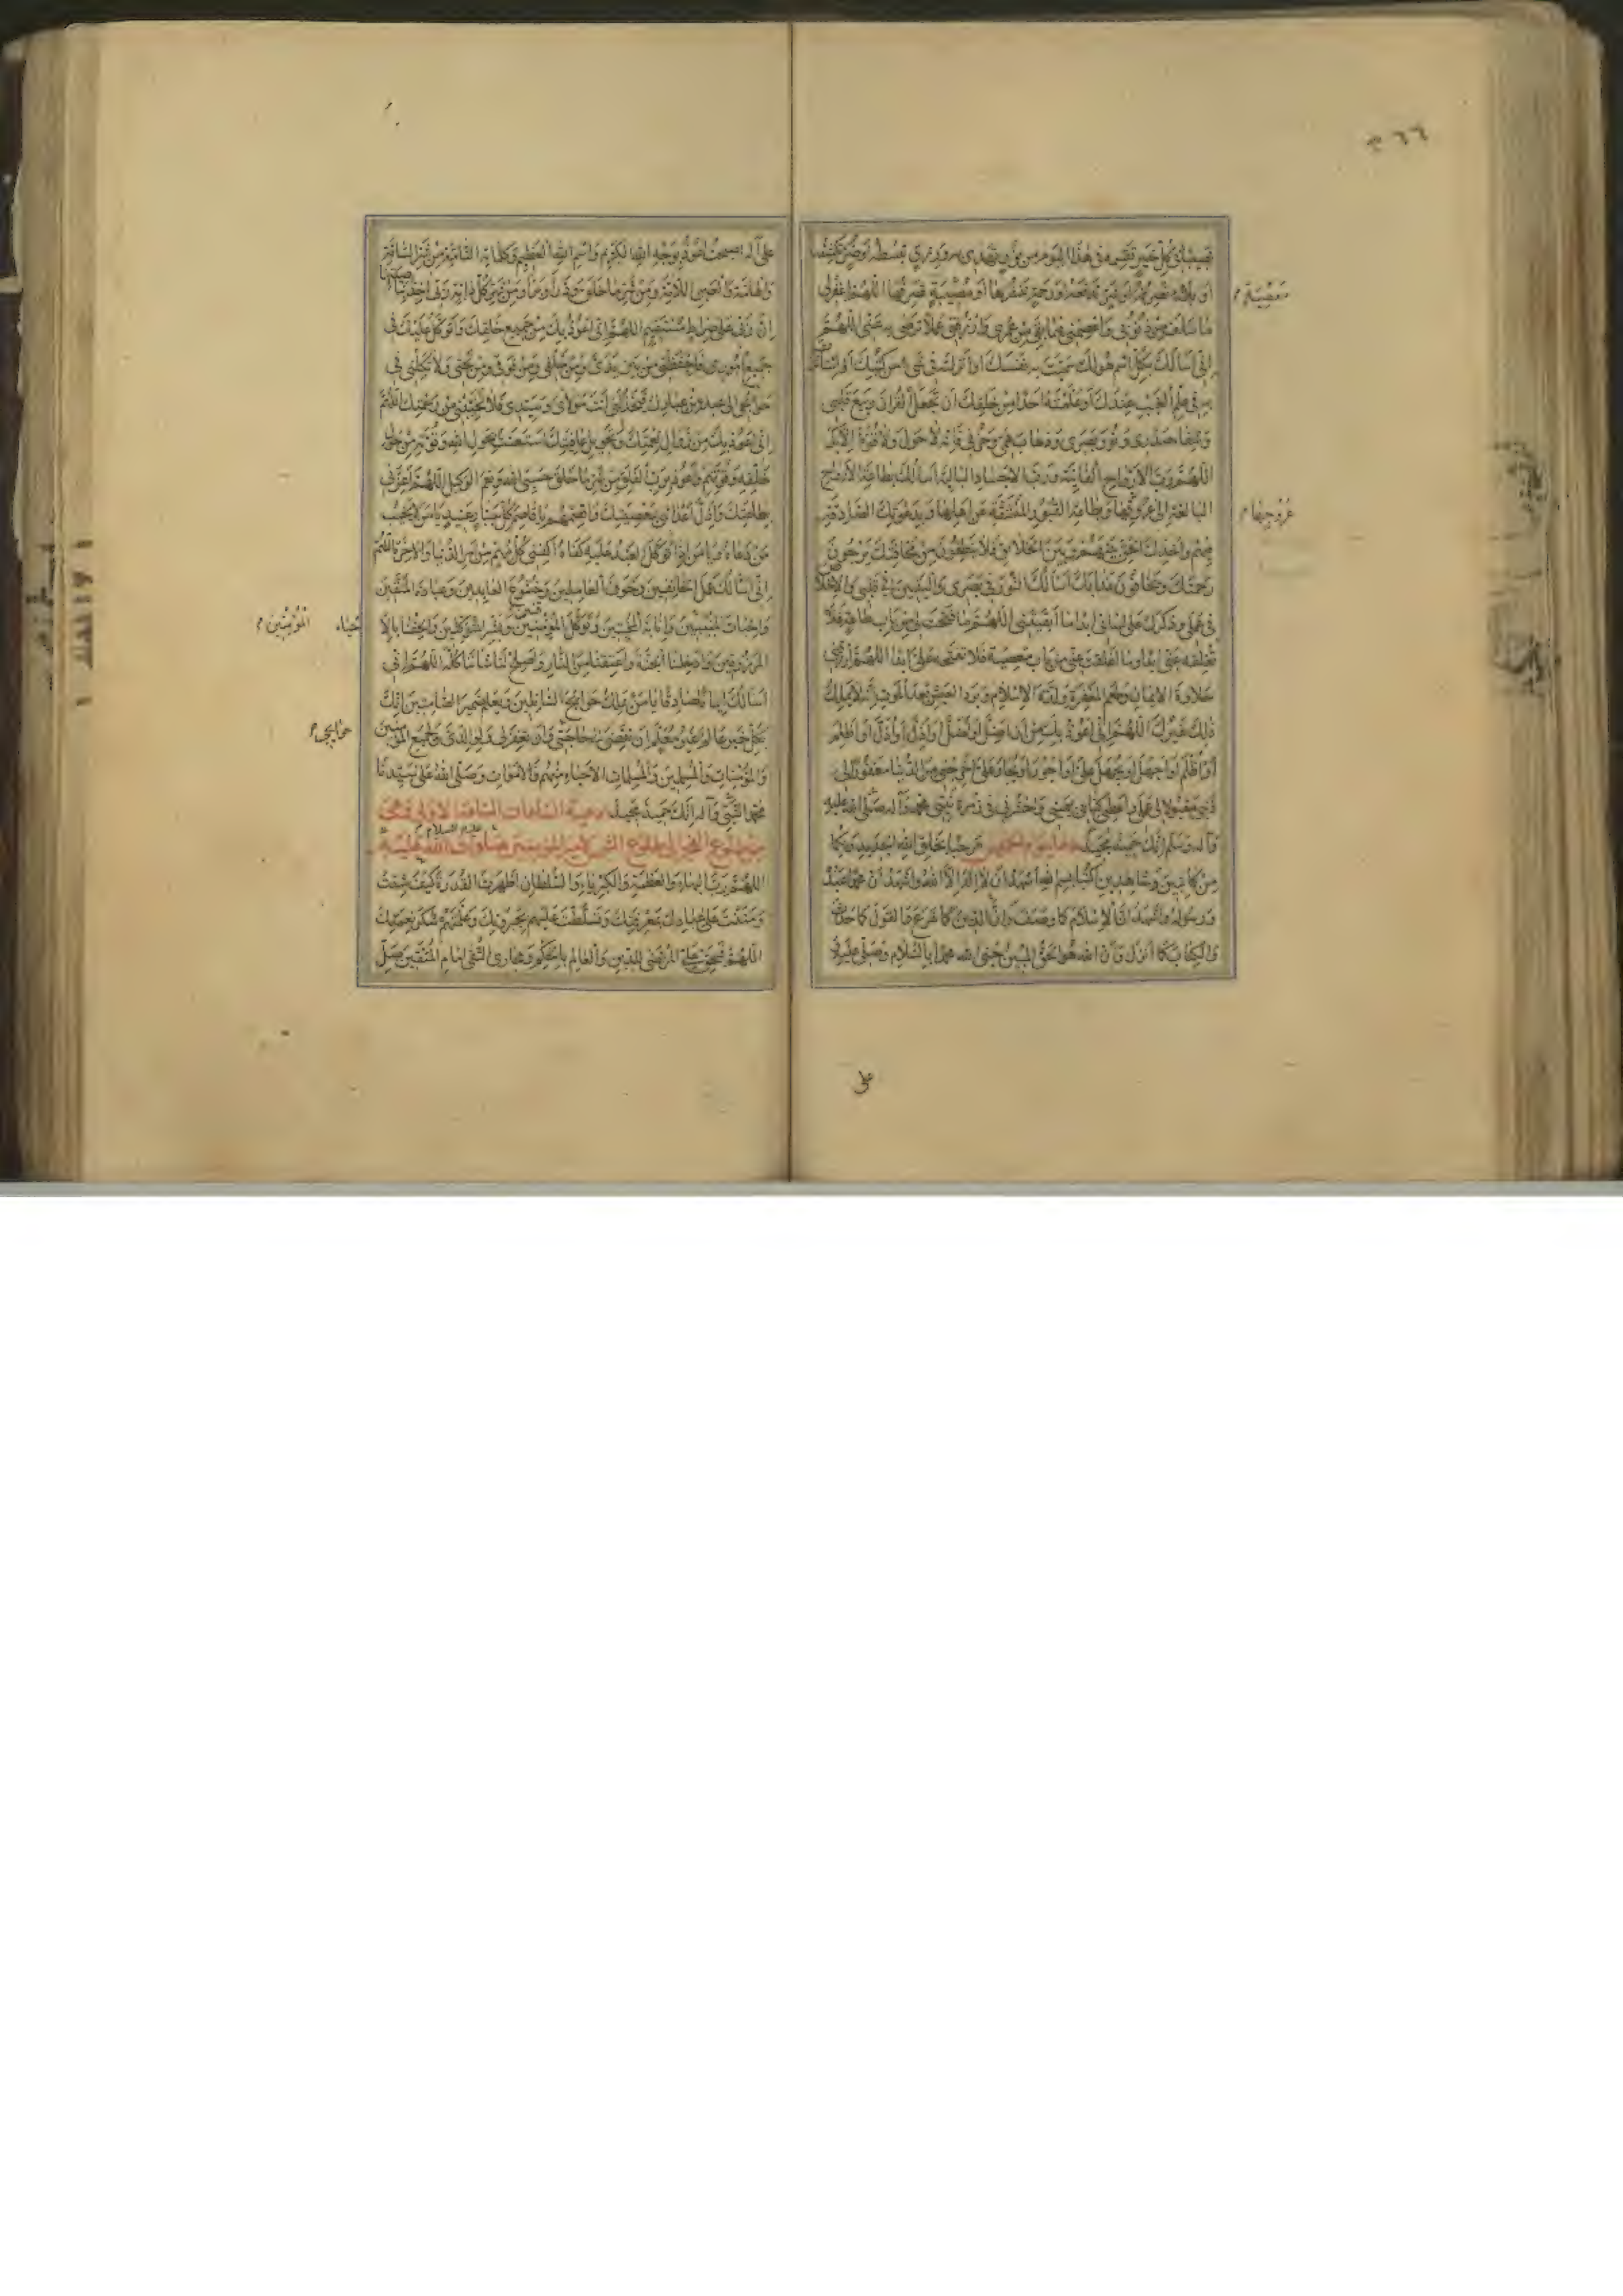 ٣٦٦
نصيبا في كل خير تقسمه في هذا اليوم من نور تهدي به او رزق تبسطه او ضر تكشفه
او بلاء تصرفه او شر تدفعه او رحمة تنشرها او مصيبة تصرفها اللهم اغفر لي
معصية
ما سلف من ذنوبي واعصمني فيما بقي من عمري وارزقني عملا ترضى به عني اللهم
اني اسألك بكل اسم هو لك سميت به نفسك او انزلته في شيء من كتبك او استأثرت
به في علم الغيب عندك او علمته احدا من خلقك ان تجعل القرآن ربيع قلبي
وشفاء صدري ونور بصري وذهاب همي وحزني فانه لا حول ولا قوة الا بك
اللهم رب الارواح الفانية ورب الاجساد البالية اسألك بطاعة الارواح
البالغة الى عروقها وبطاعة القبور المنشقة عن اهلها وبدعوتك الصادقة
عروجها
فيهم واخذك الحق بينهم وبين الخلائق فلا ينطقون من مخافتك يرجون
رحمتك ويخافون عذابك اسألك النور في بصري واليقين في قلبي والاخلاص
في عملي وذكرك على لساني ابدا ما ابقيتني اللهم ما فتحت لي من باب طاعة فلا
تغلقه عني ابدا وما اغلقت عني من باب معصية فلا تفتحه علي ابدا اللهم ارزقني
حلاوة الايمان وطعم المغفرة ولذة الاسلام وبرد العيش بعد الموت انه لا يملك
ذلك غيرك اللهم اني اعوذ بك من ان اضل او اضل او اذل او اذل او اظلم
او اظلم او اجهل او يجهل علي او اجور او يجار علي اخرجني من الدنيا مغفورا لي
ذنبي مقبولا لي عملي واعطني كتابي بيميني واحشرني في زمرة نبيي محمد وآله صلى الله عليه
وآله وسلم انك حميد مجيد دعاء يوم الخميس مرحبا بخلق الله الجديد وبكما
من كاتبين وشاهدين اكتبا بسم الله اشهد ان لا اله الا الله واشهد ان محمدا عبده
ورسوله واشهد ان الاسلام كما وصف وان الدين كما شرع والقول كما حدث
والكتاب كما انزل وان الله هو الحق المبين حيى الله محمدا بالسلام وصلى عليه
على
على آله اصبحت اعوذ بوجه الله الكريم واسم الله العظيم وكلماته التامة من شر السامة
والهامة والعين اللامة ومن شر ما خلق وذرأ وبرأ ومن شر كل دابة ربي آخذ بناصيتها
ان ربي على صراط مستقيم اللهم اني اعوذ بك من جميع خلقك واتوكل عليك في
جميع اموري فاحفظني من بين يدي ومن خلفي ومن فوقي ومن تحتي ولا تكلني في
حوائجي الى عبد من عبادك فيخذلني انت مولاي وسيدي فلا تخيبني من رحمتك اللهم
اني اعوذ بك من زوال نعمتك وتحويل عافيتك استعنت بحول الله وقوته من حول
خلقه وقوتهم واعوذ برب الفلق من شر ما خلق حسبي الله ونعم الوكيل اللهم اعزني
بطاعتك واذل اعدائي بمعصيتك واقصمهم يا قاصم كل جبار عنيد يا من لا يخيب
من دعاه ويا من اذا توكل العبد عليه كفاه اكفني كل مهم من امر الدنيا والاخرة اللهم
اني اسألك عمل الخائفين وخوف العاملين وخشوع العابدين وعبادة المتقين
واخبات المؤمنين وانابة المخبتين وتوكل الموقنين وبشر المتوكلين والحقنا بالاحياء
المؤمنين
المرزوقين وادخلنا الجنة واعتقنا من النار واصلح لنا شأننا كله اللهم اني
اسألك ايمانا صادقا يا من يملك حوائج السائلين ويعلم ضمير الصامتين انك
بكل خير عالم غير معلم ان تقضي حاجتي وان تغفر لي ولوالدي ولجميع المؤمنين
حوائجي
والمؤمنات والمسلمين والمسلمات الاحياء منهم والاموات وصلى الله على سيدنا
محمد النبي وآله انك حميد مجيد ادعية الساعات الساعة الاولى وهي
من طلوع الفجر الى طلوع الشمس لامير المؤمنين صلوات الله عليه
اللهم رب البهاء والعظمة والكبرياء والسلطان اظهرت القدرة كيف شئت
ومننت على عبادك بمعرفتك وتسلطت عليهم بجبروتك وعلمتهم شكر نعمتك
اللهم فبحق علي المرتضى للدين والعالم بالحكم ومجاري التقى امام المتقين صل